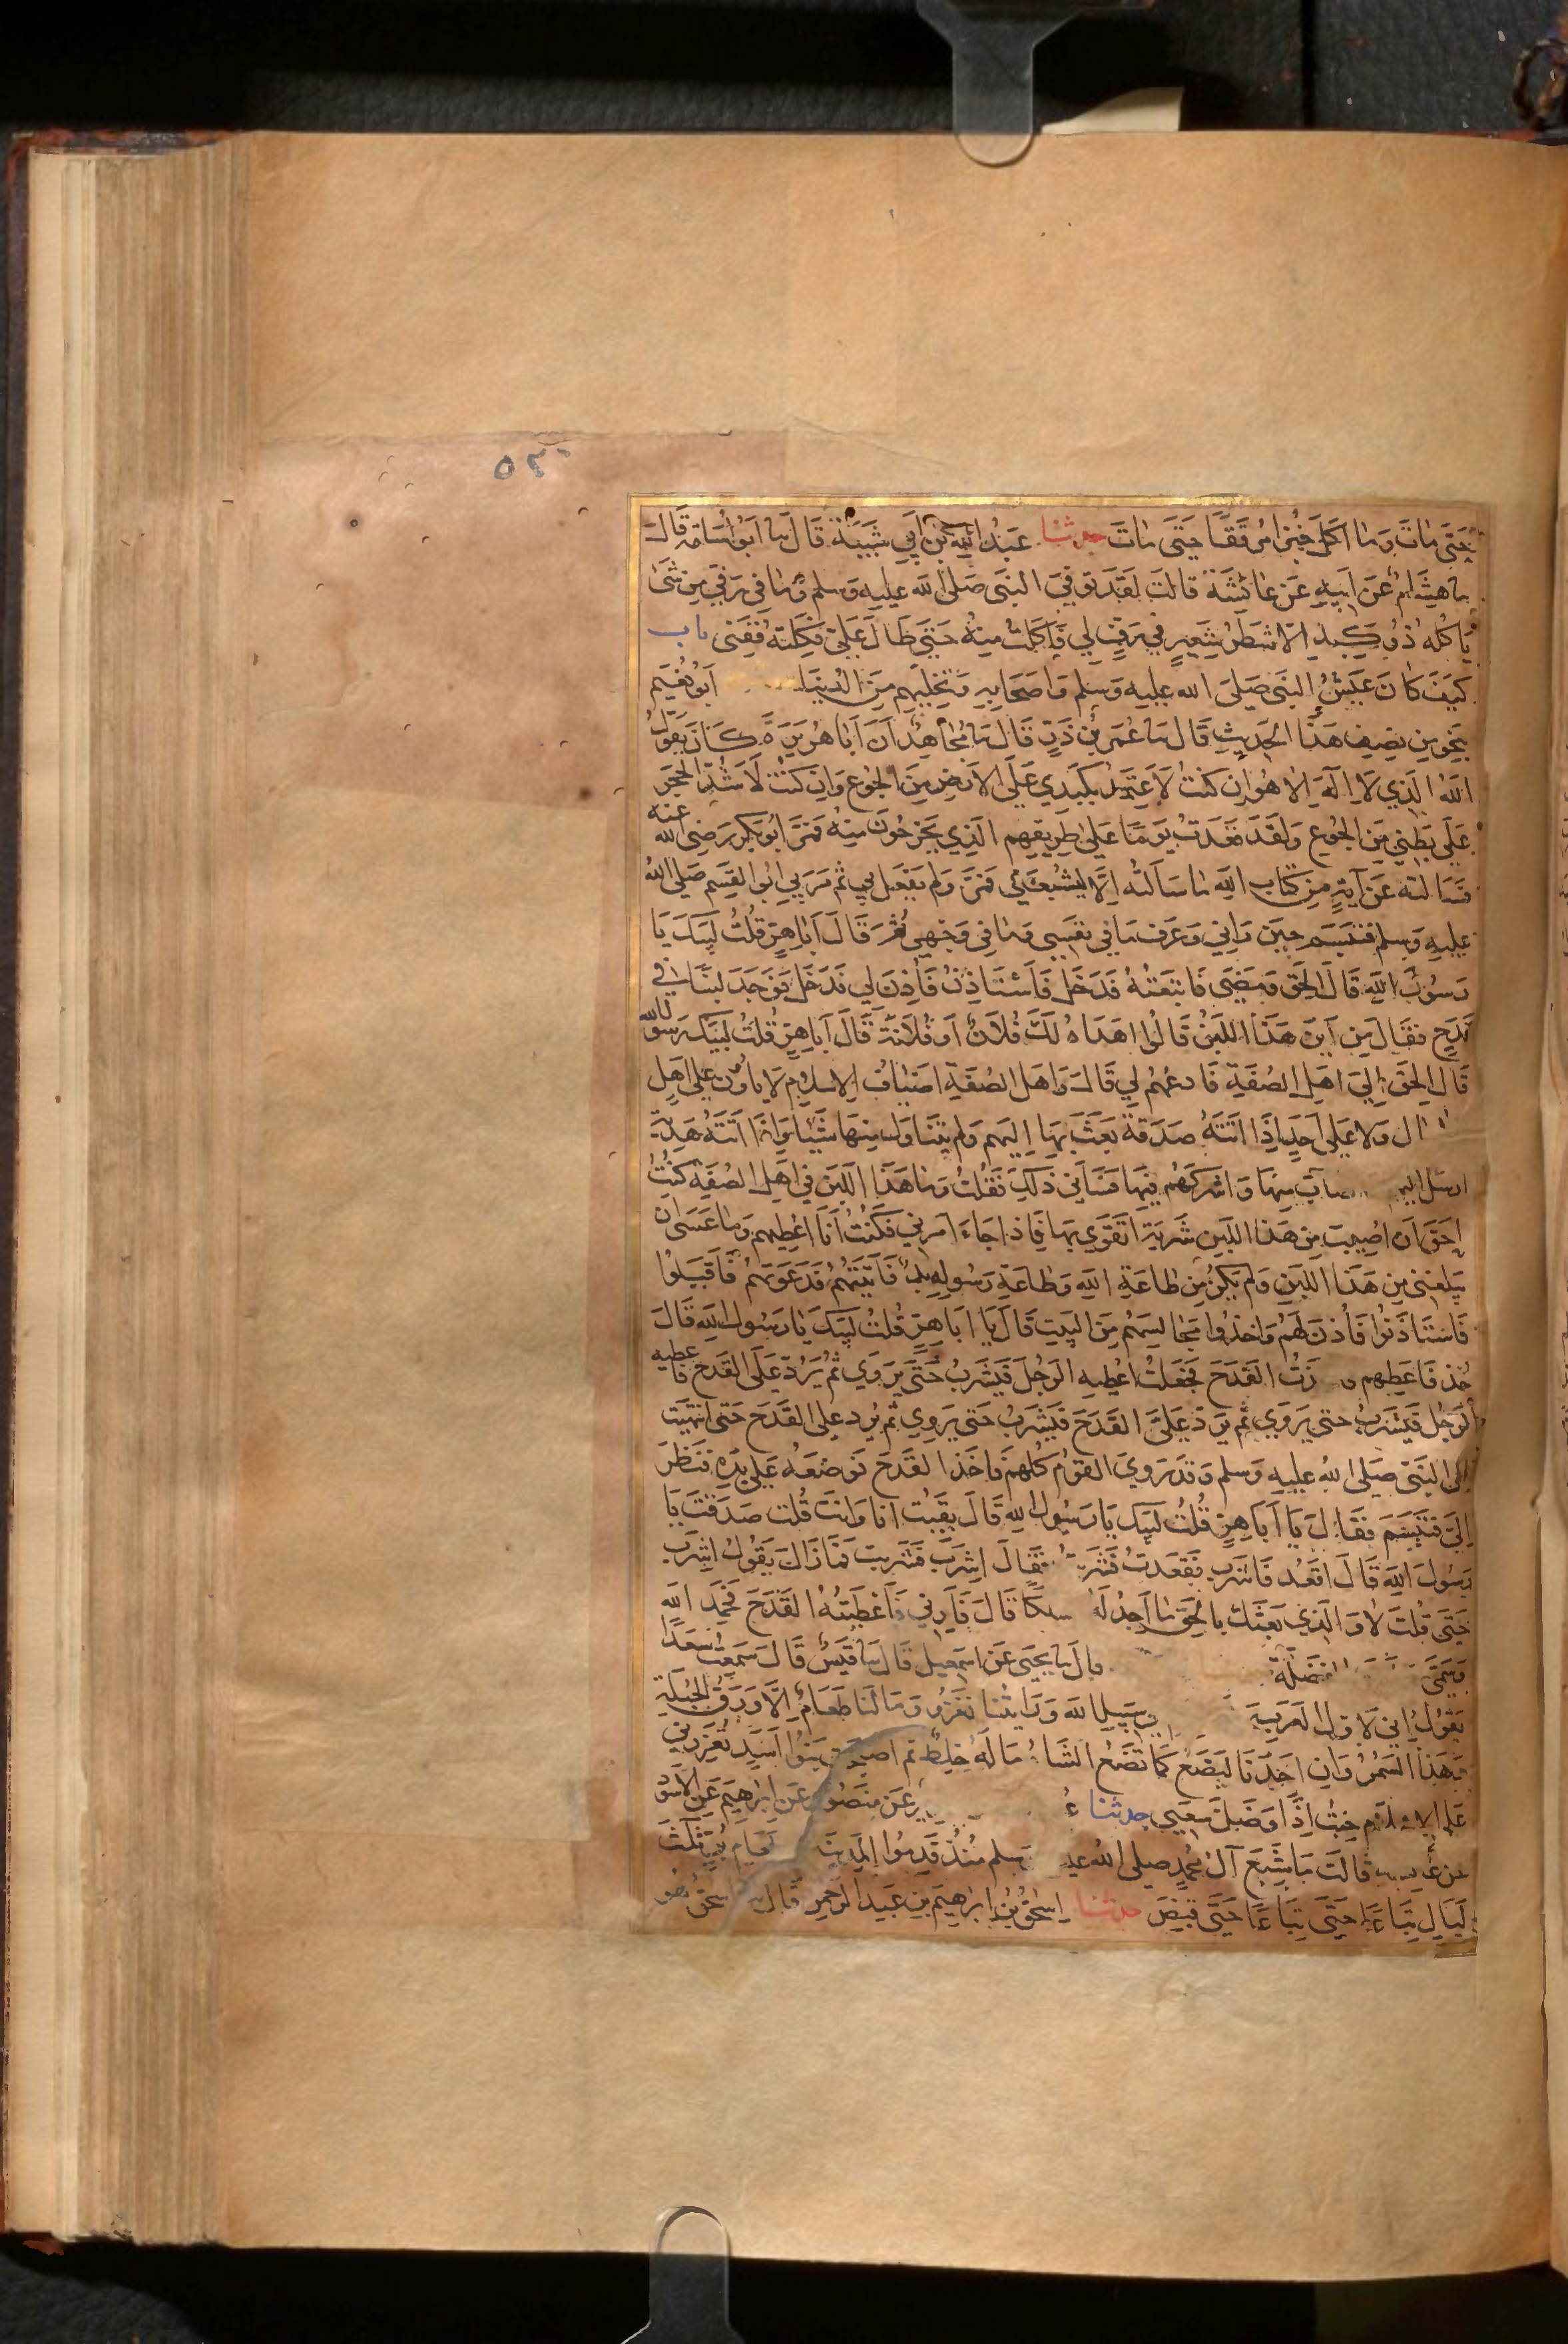 ٥٢٠
حَتَّى مَاتَ وَمَا اَكَلَ خُبْزًا مُرَقَّقًا حَتَّى مَاتَ حدثنا عَبْدُ اللهِ بْنُ اَبِي شَيْبَةَ قَالَ نا اَبُو اُسَامَةَ قَالَ
نا هِشَامٌ عَنْ اَبِيهِ عَنْ عَائِشَةَ قَالَتْ لَقَدْ تُوُفِّيَ النَّبِي صَلَّى الله عَلَيهِ وَسلم وَمَا فِى رَفِّي مِن شَئ
يَاكُلُهُ ذُو كَبِدٍ اِلَّا شَطْرُ شَعِيرٍ فِي رَفٍّ لِي فَاَكَلْتُ مِنْهُ حَتَّى طَالَ عَلَيَّ فَكِلْتُهُ فَفَنَى باب
كَيْفَ كَانَ عَيْشُ النَّبِي صَلَّى الله عليه وَسلم وَاصْحَابِهِ وَتَخَلِّيهِم مِنَ الدُنيَا اَبُو نُعَيْم
بِنَحْوٍ مِن نِصْفِ هَذَا الحَدِيثِ قَالَ نا عُمَرُ بْنُ ذَرٍّ قَالَ نا مُجَاهِدٌ اَنَّ اَبَا هُرَيْرَةَ كَانَ يَقُولُ
اللهُ الَّذِي لَا اِلَهَ اِلا هُوَ اِن كُنْتُ لَاَعْتَمِدُ بِكَبِدِي عَلَى الاَرْضِ مِنَ الجُوعِ وَاِن كُنْتُ لَاَشُدُّ الحَجَرَ
عَلَى بَطْنِي مِنَ الجُوعِ وَلَقَدْ قَعَدْتُ يَوْمًا عَلَى طَرِيقِهِم الَّذِي يَخْرُجُونَ مِنْهُ فَمَرَّ اَبُو بَكْرٍ رَضِى الله عنه
فَسَاَلْتُهُ عَنْ آيَةٍ مِنْ كِتَابِ اللهِ مَا سَاَلْتُهُ اِلَّا لِيُشْبِعَنِي فَمَرَّ وَلَم يَفْعَل ثُم مَرَّ بِي اَبُو القَسِم صَلَّى اللهُ
عَلَيهِ وَسلم فَتَبَسَّمَ حِينَ رَآنِي وَعَرَفَ مَا فِي نَفْسِي وَمَا فِي وَجْهِي ثُمَّ قَالَ اَبَا هِرٍّ قُلْتُ لَبَّيْكَ يَا
رَسُولَ اللهِ قَالَ الحَقْ وَمَضَى فَاتَّبَعْتُهُ فَدَخَلَ فَاسْتَاذَنْتُ فَاَذِنَ لِي فَدَخَلَ فَوَجَدَ لَبَنًا فِي
قَدَحٍ فَقَالَ مِن اَيْنَ هَذَا اللَّبَنُ قَالُوا اهْدَاهُ لَكَ فُلَانٌ اَو فُلَانَةُ قَالَ اَبَا هِرٍّ قُلْتُ لَبَّيْكَ رَسُولَ الله
قَالَ الحَقْ اِلَى اهْلِ الصُّفَّةِ فَادْعُهُم لِي قَالَ وَاَهْلُ الصُّفَّةِ اضْيَافُ الاسْلَامِ لَا يَاوُونَ عَلَى اَهْلٍ
ال وَلا عَلَى اَحَدٍ اِذَا اتَتْهُ صَدَقَةٌ بَعَثَ بِهَا اِلَيهِم وَلَم يَتَنَاوَل مِنْهَا شَيْئًا وَاِذَا اَتَتْهُ هَدِيَّةٌ
ارسَلَ اليهِم صاب مِنْهَا وَاَشْرَكَهُم فِيهَا فَسَاءَنِي ذَلِكَ فَقُلْتُ وَمَا هَذَا اللَّبَن فِي اَهْلِ الصُفَّةِ كُنْتُ
اَحَقَّ اَن اُصِيبَ مِن هَذَا اللَّبَنِ شَرْبَةً اَتَقَوَّى بِهَا فَاذَا جَاءَ اَمَرَنِي فَكُنْتُ اَنَا اُعْطِيهِم وَمَا عَسَى ان
يَبْلُغَنِي مِن هَذَا اللَّبَنِ وَلَم يَكُن مِن طَاعَةِ اللهِ وَطَاعَةِ رَسُولِهِ بُدٌّ فَاَتَيْتُهُم فَدَعَوْتُهُم فَاَقْبَلُوا
فَاسْتَاذَنُوا فَاَذِنَ لَهُم وَاخَذُوا مَجَالِسَهُم مِنَ البَيتِ قَالَ يَا اَبَا هِرٍّ قُلْتُ لَبَّيْكَ يَا رَسُولَ اللهِ قَالَ
خُذ فَاَعْطِهِم ذْتُ القَدَحَ فَجَعَلْتُ اُعْطِيهِ الرَّجُلَ فَيَشْرَبُ حَتَّى يَرْوَى ثُمَّ يَرُدُّ عَلَىَّ القَدَحَ فَاُعْطِيهِ
الرَّجُلَ فَيَشْرَبُ حتى يَرْوَى ثُم يَرُدُّ عَلَىَّ القَدَحَ فَيَشْرَبُ حَتَى يَرْوَى ثُم يَرُد عَلى القَدَحَ حَتَى انْتَهَيْت
اِلَى النَّبِي صَلَّى اللهُ عليه وَسلم وَقَدْ رَوِيَ القَوْمُ كُلُّهُم فَاَخَذَ القَدَحَ فَوَضَعَهُ عَلَى يَدِهِ فَنَظَرَ
اِلَيَّ فَتَبَسَّمَ فَقَالَ يَا اَبَا هِرٍّ قُلْتُ لَبَّيْكَ يَا رَسُولَ اللهِ قَالَ بَقِيتُ اَنَا وَانْتَ قُلت صَدَقْتَ يَا
رَسُولَ اللهِ قَالَ اقْعُد فَاشْرَب فَقَعَدْتُ فَشَرِبت فَقَالَ اشْرَب فَشَرِبت فَمَا زَالَ يَقُولُ اشْرَب
حَتَّى قُلْتُ لَا وَالَّذِي بَعَثَكَ بِالحَقِّ مَا اَجِدُ لَهُ مسلكًا قَالَ فَاَرِنِي فَاَعْطَيْتُهُ القَدَحَ فَحَمِدَ اللهَ
وَسَمَّى الفَضْلَةَ قال نا يَحْيَى عَن اسْمَعِيلَ قَالَ نا قَيْسٌ قَالَ سَمِعْتُ سَعْدًا
يَقُولُ اِنِّي لَاَوَّلُ العَرَبِ سَبِيلِ اللهِ وَرَاَيْتُنَا نَغْزُو وَمَا لَنَا طَعَامٌ اِلَّا وَرَقُ الحُبْلَةِ
وَهَذَا السَّمُرُ وَاِن اَحَدَنَا لَيَضَعُ كَمَا تَضَعُ الشَّاةُ مَا لَهُ خِلْطٌ ثم اصبحت بَنُو اَسَدٍ تُعَزِّرُنِي
عَلَى الاسلَامِ خِبْتُ اِذًا وَضَلَّ سَعْيِي حدثنا عَنْ مَنْصُورٍ عَنْ اِبْرَهِيمَ عَنِ الاَسْوَد
عَنْ قَالَتْ مَا شَبِعَ آلُ مُحَمَّدٍ صلى الله عليه وسلم مُنْذُ قَدِمُوا المَدِينَةَ طَعَامِ بُرٍّ ثَلَث
لَيَالٍ تِبَاعًا حَتَّى تِبَاعًا حَتَّى قُبِضَ حدثنا اِسْحَقُ بْنُ اِبْرَهِيمَ بْنِ عَبْدِ الرَّحْمنِ قَالَ نا اسْحَقُ هُوَ